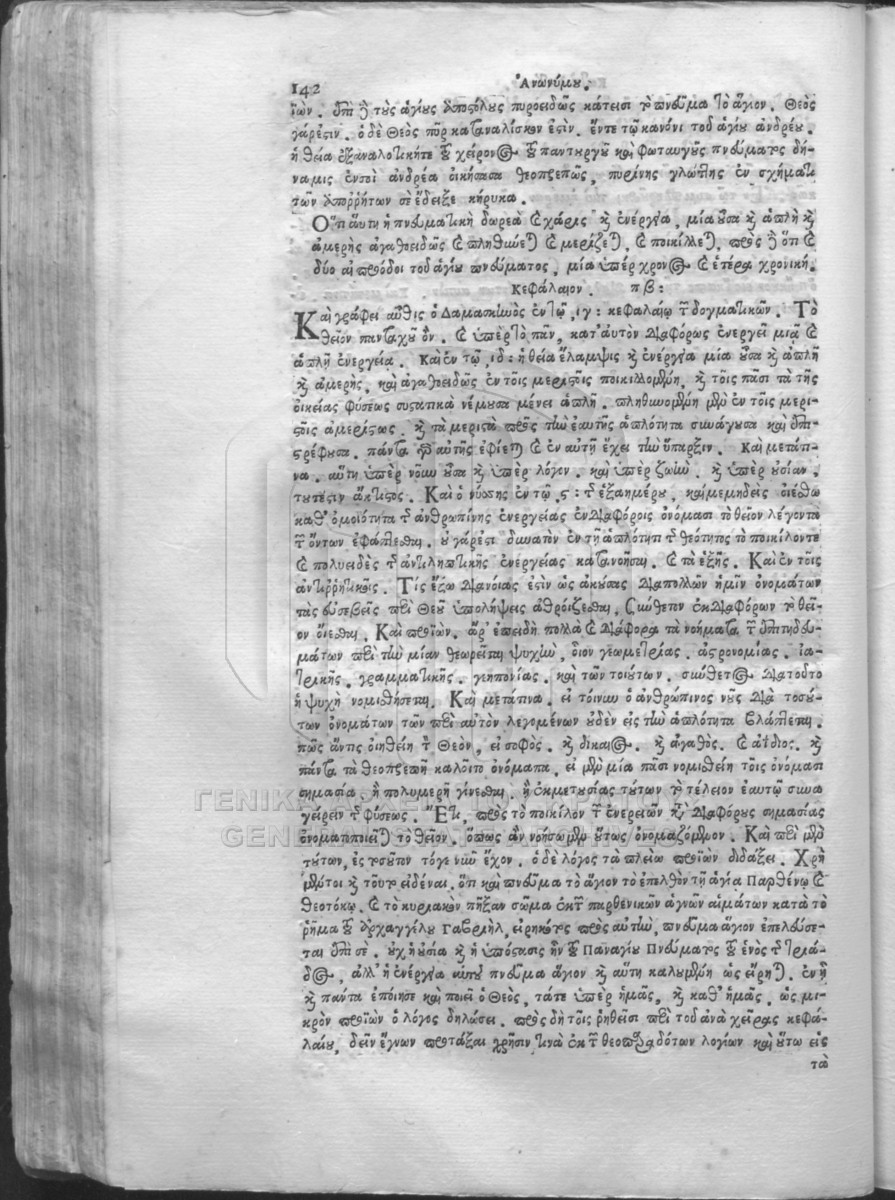 142 Ἀνωνύμου.
ϊών. ἐπὶ γὰρ τοὺς ἁγίους ἀποστόλους πυροειδῶς κάτεισι τὸ πνεῦμα τὸ ἅγιον. Θεὸς
γάρἐστιν. ὁ δὲ Θεὸς πῦρ καταναλίσκον ἐστὶν. ἔντε τῷ κανόνι τοῦ ἁγίου ἀνδρέου.
ἡ θεία ἐξαναλοτικήτε τοῦ χείρονος τοῦ παντουργοῦ καὶ φωταυγοῦς πνεύματος δύ-
ναμις ἐνσοὶ ἀνδρέα οἰκήσασα θεοπρεπῶς, πυρίνης γλώττης ἐν σχήματι
τῶν ἀπορρήτων σὲ ἔδειξε κήρυκα.
Ὅτι αὕτη ἡ πνευματικὴ δωρεὰ καὶ χάρις καὶ ἐνέργεια, μία οὖσα καὶ ἁπλὴ καὶ
ἀμερὴς ἀγαθοειδῶς καὶ πληθύνεται καὶ μερίζεται, καὶ ποικίλλεται, πρὸς ὅτι καὶ
δύο αἱ πρόοδοι τοῦ ἁγίου πνεύματος, μία ὑπέρ χρονος καὶ ἑτέρα χρονική.
Κεφάλαιον. πβ:
Καὶ γράφει αὖθις ὁ Δαμασκηνὸς ἐν τῷ, ιγ: κεφαλαίῳ τῶν δογματικῶν. Τὸ
θεῖον πανταχοῦ ὂν. καὶ ὑπὲρ τὸ πᾶν, κατ' αὐτὸν διαφόρως ἐνεργεῖ μιᾷ καὶ
ἁπλῇ ἐνεργείᾳ. Καὶ ἐν τῷ, ιδ: ἡ θεία ἔλλαμψις καὶ ἐνέργεια μία οὖσα καὶ ἁπλῆ
καὶ ἀμερὴς, καὶ ἀγαθοειδῶς ἐν τοῖς μεριστοῖς ποικιλλομένη, καὶ τοῖς πᾶσι τὰ τῆς
οἰκείας φύσεως συστατικὰ νέμουσα μένει ἁπλῆ. πληθυνομένη μὲν ἐν τοῖς μερι-
στοῖς ἀμερίστως. καὶ τὰ μεριστὰ πρὸς τὴν ἑαυτῆς ἁπλότητα συνάγουσα καὶ ἐπι-
στρέφουσα. πάντα γὰρ αὐτῆς ἐφίεται καὶ ἐν αὐτῇ ἔχει τὴν ὕπαρξιν. Καὶ μετάτι-
να. αὕτη ὑπὲρ νοῦν οὖσα καὶ ὑπὲρ λόγον. καὶ ὑπὲρ ζωὴν. καὶ ὑπὲρ οὐσίαν.
τουτέστιν ἄκτιστος. Καὶ ὁ νύσσης ἐν τῷ, ς: τῆς ἑξαημέρου, καί μεμηδεὶς οἰέσθω
καθ' ὁμοιότητα τῆς ἀνθρωπίνης ἐνεργείας ἐν διαφόροις ὀνόμασι τὸ θεῖον λέγοντα
τῶν ὄντων ἐφάπτεσθαι. οὐ γάρ ἐστι δυνατὸν ἐν τῇ ἁπλότητι τῆς θεότητος τὸ ποικίλοντε
καὶ πολυειδὲς τῆς ἀντιληπτικῆς ἐνεργείας κατανοῆσαι. καὶ τὰ ἑξῆς. Καὶ ἐν τοῖς
ἀντιρρητικοῖς. Τίς ἔξω διανοίας ἐστὶν ὡς ἀκούσας διαπολλῶν ἡμῖν ὀνομάτων
τὰς εὐσεβεῖς περὶ Θεοῦ ὑπολήψεις ἀθροίζεσθαι, σύνθετον ἐκ διαφόρων τὸ θεῖ-
ον οἴεσθαι. Καὶ προϊών. ἆρ' ἐπειδὴ πολλὰ καὶ διάφορα τὰ νοήματα τῶν ἐπιτηδευ-
μάτων περὶ τὴν μίαν θεωρεῖται ψυχὴν, οἷον γεωμετρίας. ἀστρονομίας. ἰα-
τρικῆς. γραμματικῆς. γεηπονίας. καὶ τῶν τοιούτων. σύνθετος διατοῦτο
ἡ ψυχὴ νομισθήσεται. Καὶ μετάτινα. εἰ τοίνυν ὁ ἀνθρώπινος νοῦς διὰ τοσού-
των ὀνομάτων τῶν περὶ αὐτὸν λεγομένων οὐδὲν εἰς τὴν ἁπλότητα βλάπτεται.
πῶς ἄντις οἰηθείη τὸν Θεὸν, εἰ σοφὸς. καὶ δίκαιος. καὶ ἀγαθὸς. καὶ ἀΐδιος. καὶ
πάντα τὰ θεοπρεπῆ καλοῖτο ὀνόματα, εἰ μὴ μία πᾶσι νομισθείη τοῖς ὀνόμασι
σημασία, ἢ πολυμερῆ γίνεσθαι. ἢ ἐκμετουσίας τούτων τὸ τέλειον ἑαυτῷ συνα
γείρειν τῆς φύσεως. Ἔτι, πρὸς τὸ ποικίλον τῶν ἐνεργειῶν κατὰ διαφόρους σημασίας
ὀνοματοποιεῖται τὸ θεῖον. ὅπως ἂν νοήσωμεν οὕτως ὀνομαζόμενον. Καὶ περὶ μὲν
τούτων, ἐς τοσοῦτον τόγε νῦν ἔχον. ὁ δὲ λόγος τὰ πλείω προϊὼν διδάξει. Χρὴ
μέντοι καὶ τοῦτο εἰδέναι. ὅτι καὶ πνεῦμα τὸ ἅγιον τὸ ἐπελθὸν τῇ ἁγίᾳ Παρθένῳ καὶ
θεοτόκῳ. καὶ τὸ κυριακὸν πῆξαν σῶμα ἐκ τῶν παρθενικῶν ἁγνῶν αἱμάτων κατὰ τὸ
ῥῆμα τοῦ ἀρχαγγέλου Γαβριὴλ, εἰρηκότος πρὸς αὐτὴν, πνεῦμα ἅγιον ἐπελεύσε-
ται ἐπὶ σὲ. οὐχ ἡ οὐσία καὶ ἡ ὑπόστασις ἦν τοῦ Παναγίου Πνεύματος τοῦ ἑνὸς τῆς τριά-
δος, ἀλλ' ἡ ἐνέργεια αὐτοῦ πνεῦμα ἅγιον καὶ αὕτη καλουμένη ὡς εἴρηται. ἐν ᾗ
καὶ πάντα ἐποίησε καὶ ποιεῖ ὁ Θεὸς, τάτε ὑπὲρ ἡμᾶς, καὶ καθ' ἡμᾶς, ὡς μι-
κρὸν προϊὼν ὁ λόγος δηλώσει. πρὸς δὴ τοῖς ῥηθεῖσι περὶ τοῦ ἀνὰ χεῖρας κεφα-
λαίου, δεῖν ἔγνων προτάξαι χρῆσιν τινὰ ἐκ τῶν θεοπαραδότων λογίων καὶ οὕτω εἰς
τὰ
ΓΕΝΙΚΑ ΑΡΧΕΙΑ ΤΟΥ ΚΡΑΤΟΥΣ
GENERAL STATE ARCHIVES